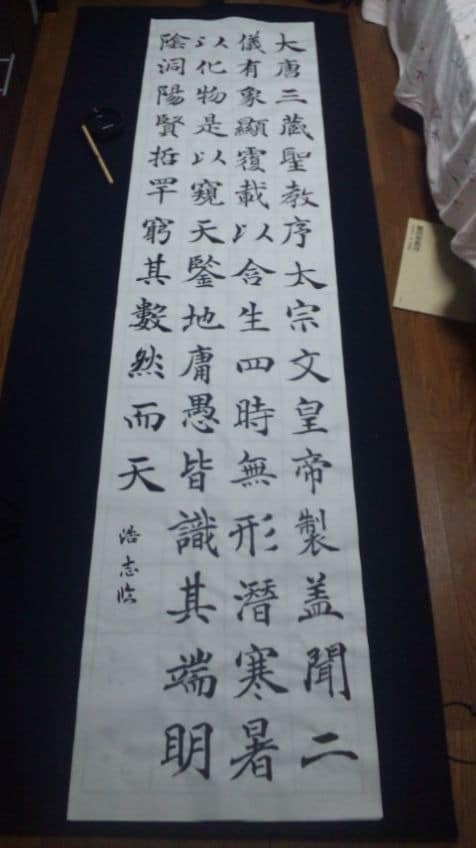 大唐三蔵聖教序太宗文皇帝製盖聞二
儀有象顯覆載以含生四時無形潛寒暑
以化物是以窺天鑒地庸愚皆識其端明
陰洞陽賢哲罕窮其數然而天
浩志臨